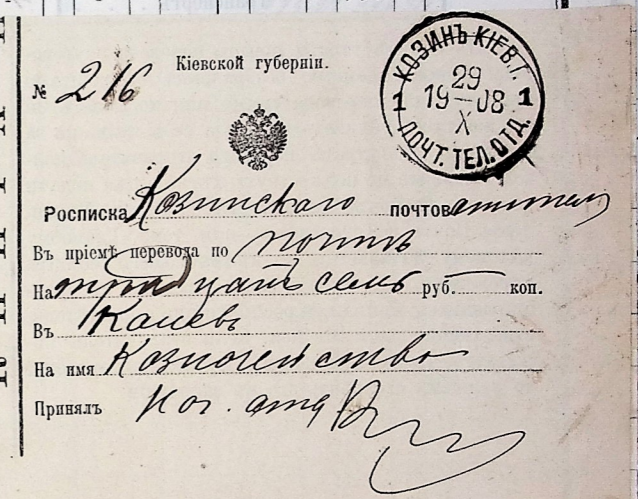 Кіевской губерніи.
№ 216
КОЗИНЪ КІЕВ.Г.
29
1 19—08 1
X
ПОЧТ.ТЕЛ.ОТД.
Росписка Козинскаго почтов
Въ пріемѣ перевода по почтѣ
На тридцать семь руб. — коп.
Въ Каневъ
На имя Казначейство
Принялъ